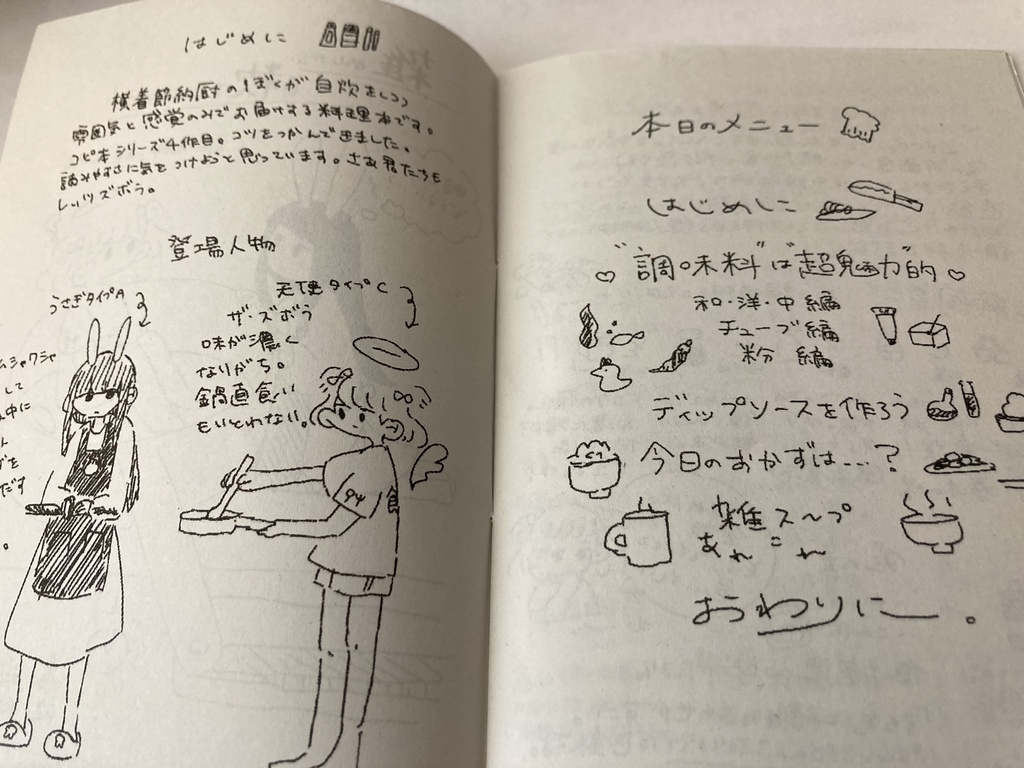 はじめに
横着節約厨のぼくが自炊をしつつ
雰囲気と感覚のみでお届けする料理本です。
コピ本シリーズ4作目。コツをつかんで出ました。
読みやすさに気をつけようと思っています。さあ君たちも
レッツズボう。
登場人物
うさぎタイプA
ムシャクシャ
して
中に
を
だす
。
天使タイプC
ザ・ズボう
味が濃く
なりがち。
鍋直食い
もいとわない。
本日のメニュー
はじめに
♡"調味料"は超魅力的♡
和・洋・中編
チューブ編
粉編
ディップソースを作ろう
今日のおかずは…?
雑スープ
あれこれ
おわりにー。